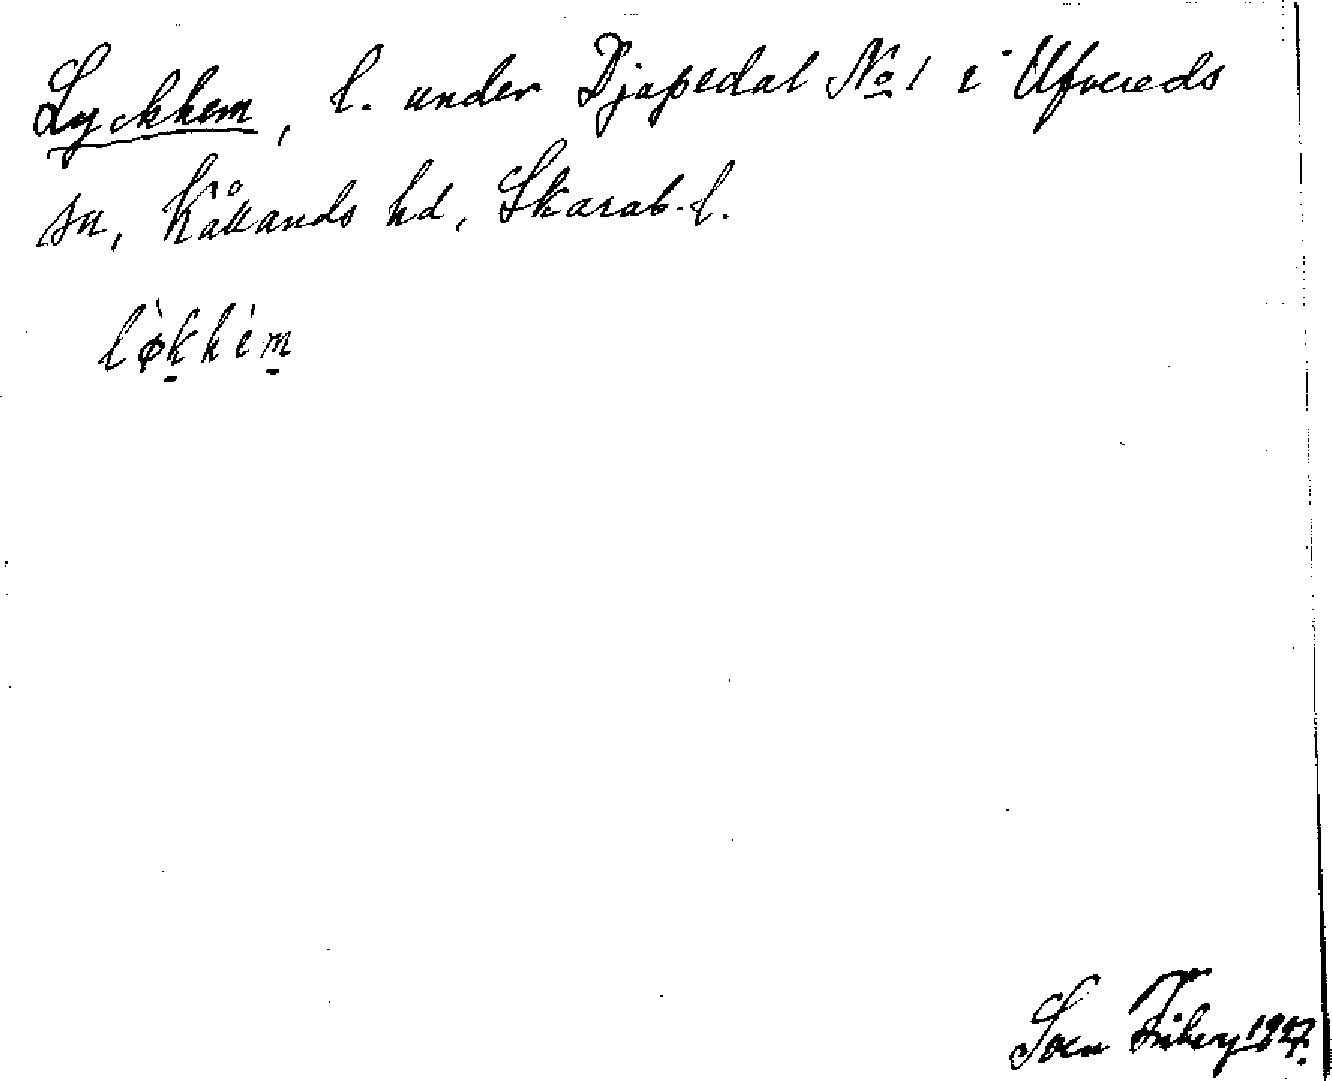 Lyckhem, l. under Djupedal No 1 i Ufvereds
sn, Kållands hd, Skarab. l.
lø̀khém
Sven Friberg 1927.